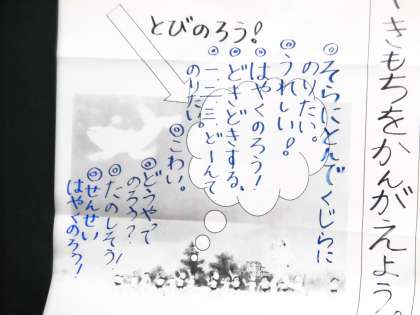 きもちをかんがえよう。
とびのろう!
◎そらにとんでくじらに
のりたい。
◎うれしい!
◎はやくのろう!
◎どきどきする。
◎一二三どーんて
のりたい。
◎こわい。
◎どうやって
のろう?
◎たのしそう!
◎せんせい
はやくのろう!